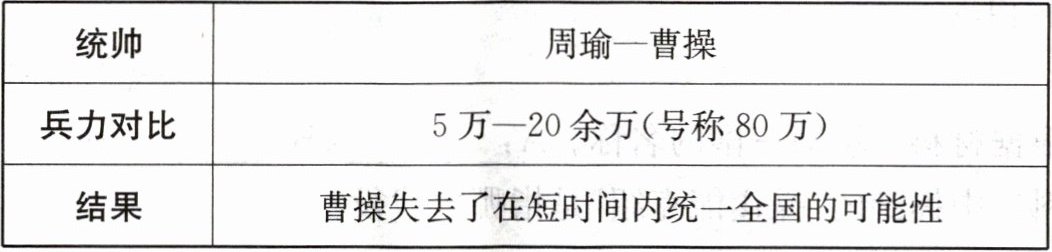 统帅 周瑜—曹操
兵力对比 5万—20余万(号称80万)
结果 曹操失去了在短时间内统一全国的可能性